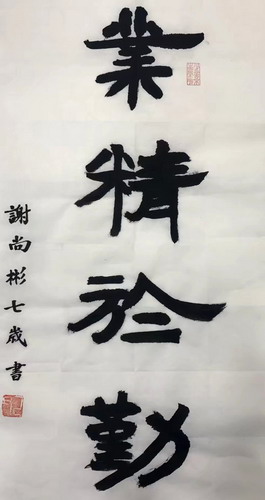 業精於勤
謝尚彬七歲書